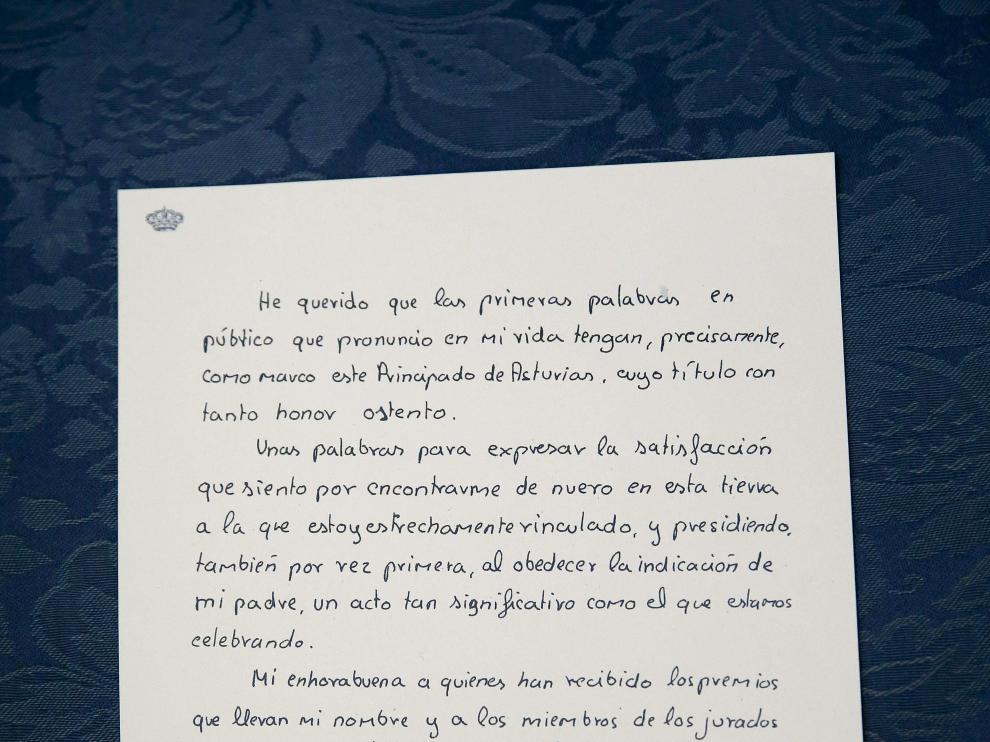 He querido que las primeras palabras en
público que pronuncio en mi vida tengan, precisamente,
como marco este Principado de Asturias, cuyo título con
tanto honor ostento.
Unas palabras para expresar la satisfacción
que siento por encontrarme de nuevo en esta tierra
a la que estoy estrechamente vinculado, y presidiendo,
también por vez primera, al obedecer la indicación de
mi padre, un acto tan significativo como el que estamos
celebrando.
Mi enhorabuena a quienes han recibido los premios
que llevan mi nombre y a los miembros de los jurados